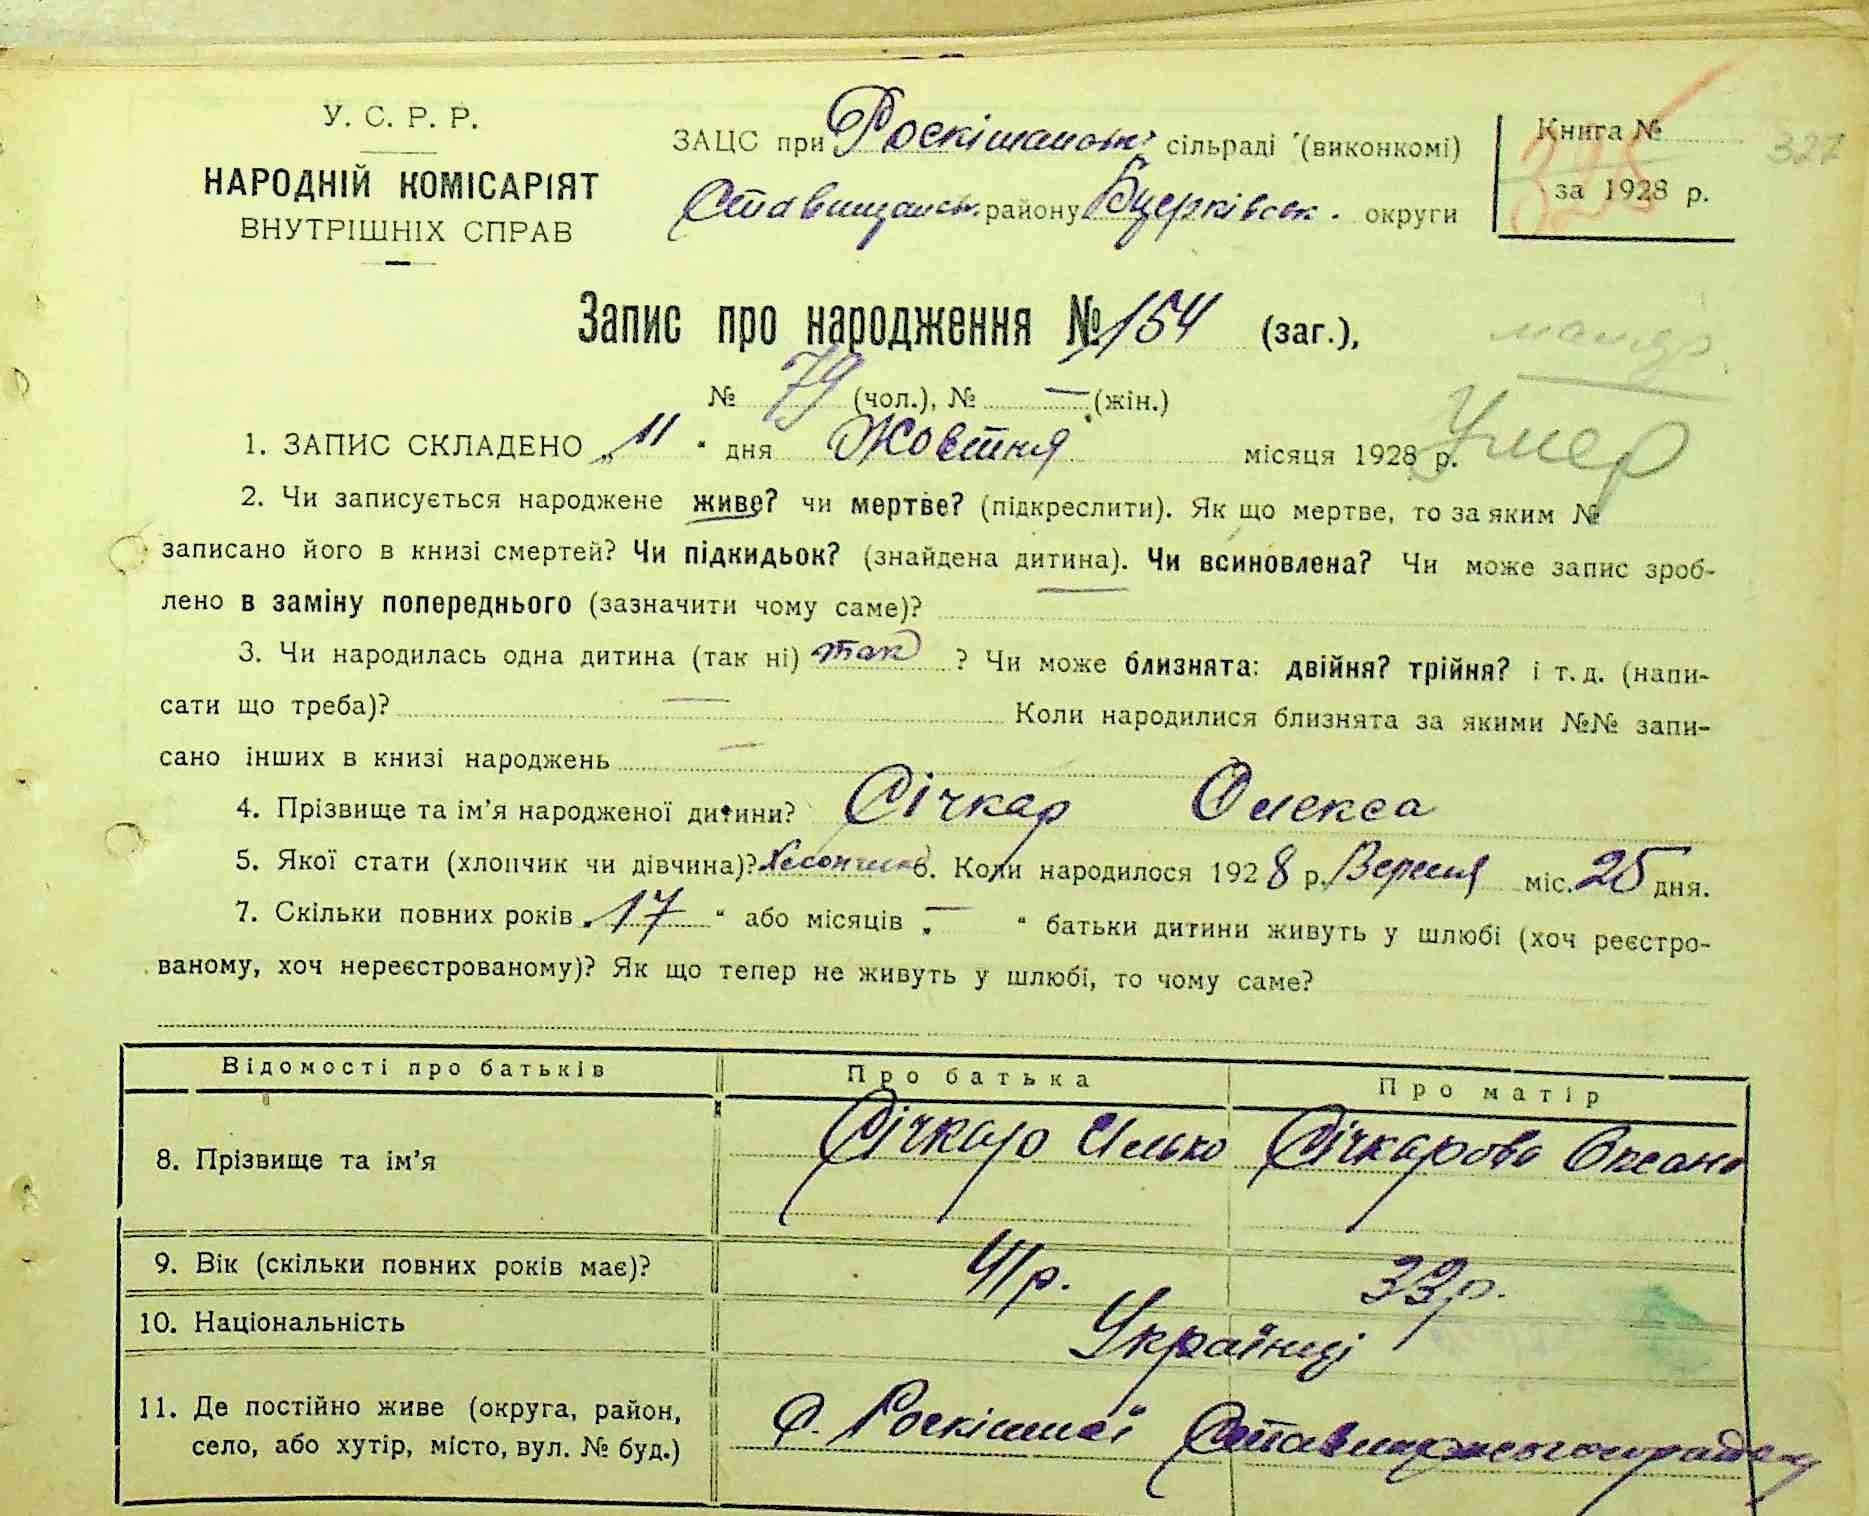 У. С. Р. Р.
НАРОДНІЙ КОМІСАРІЯТ
ВНУТРІШНІХ СПРАВ
ЗАЦС при Роскішанськ. сільраді (виконкомі)
Ставищанськ. району Бцерківськ. округи
Книга № 325 327
за 1928 р.
Запис про народження № 154 (заг.),
№ 79 (чол.), № — (жін.)
Умер
1. ЗАПИС СКЛАДЕНО „11“ дня Жовтня місяця 1928 р.
2. Чи записується народжене живе? чи мертве? (підкреслити). Як що мертве, то за яким №
записано його в книзі смертей? Чи підкидьок? (знайдена дитина). Чи всиновлена? Чи може запис зроб-
лено в заміну попереднього (зазначити чому саме)? —
3. Чи народилась одна дитина (так ні) так ? Чи може близнята: двійня? трійня? і т. д. (напи-
сати що треба)? — Коли народилися близнята за якими №№ запи-
сано інших в книзі народжень —
4. Прізвище та ім'я народженої дитини? Січкар Олекса
5. Якої стати (хлопчик чи дівчина)? Хлопчик 6. Коли народилося 1928 р. Вересня міс. 25 дня.
7. Скільки повних років „17“ або місяців „—“ батьки дитини живуть у шлюбі (хоч реєстро-
ваному, хоч нереєстрованому)? Як що тепер не живуть у шлюбі, то чому саме?
Відомості про батьків Про батька Про матір
8. Прізвище та ім'я Січкарь Ілько Січкарова Оксана
9. Вік (скільки повних років має)? 41 р. 33 р.
10. Національність Українці
11. Де постійно живе (округа, район, с. Роскішної Ставищанського району
село, або хутір, місто, вул. № буд.)